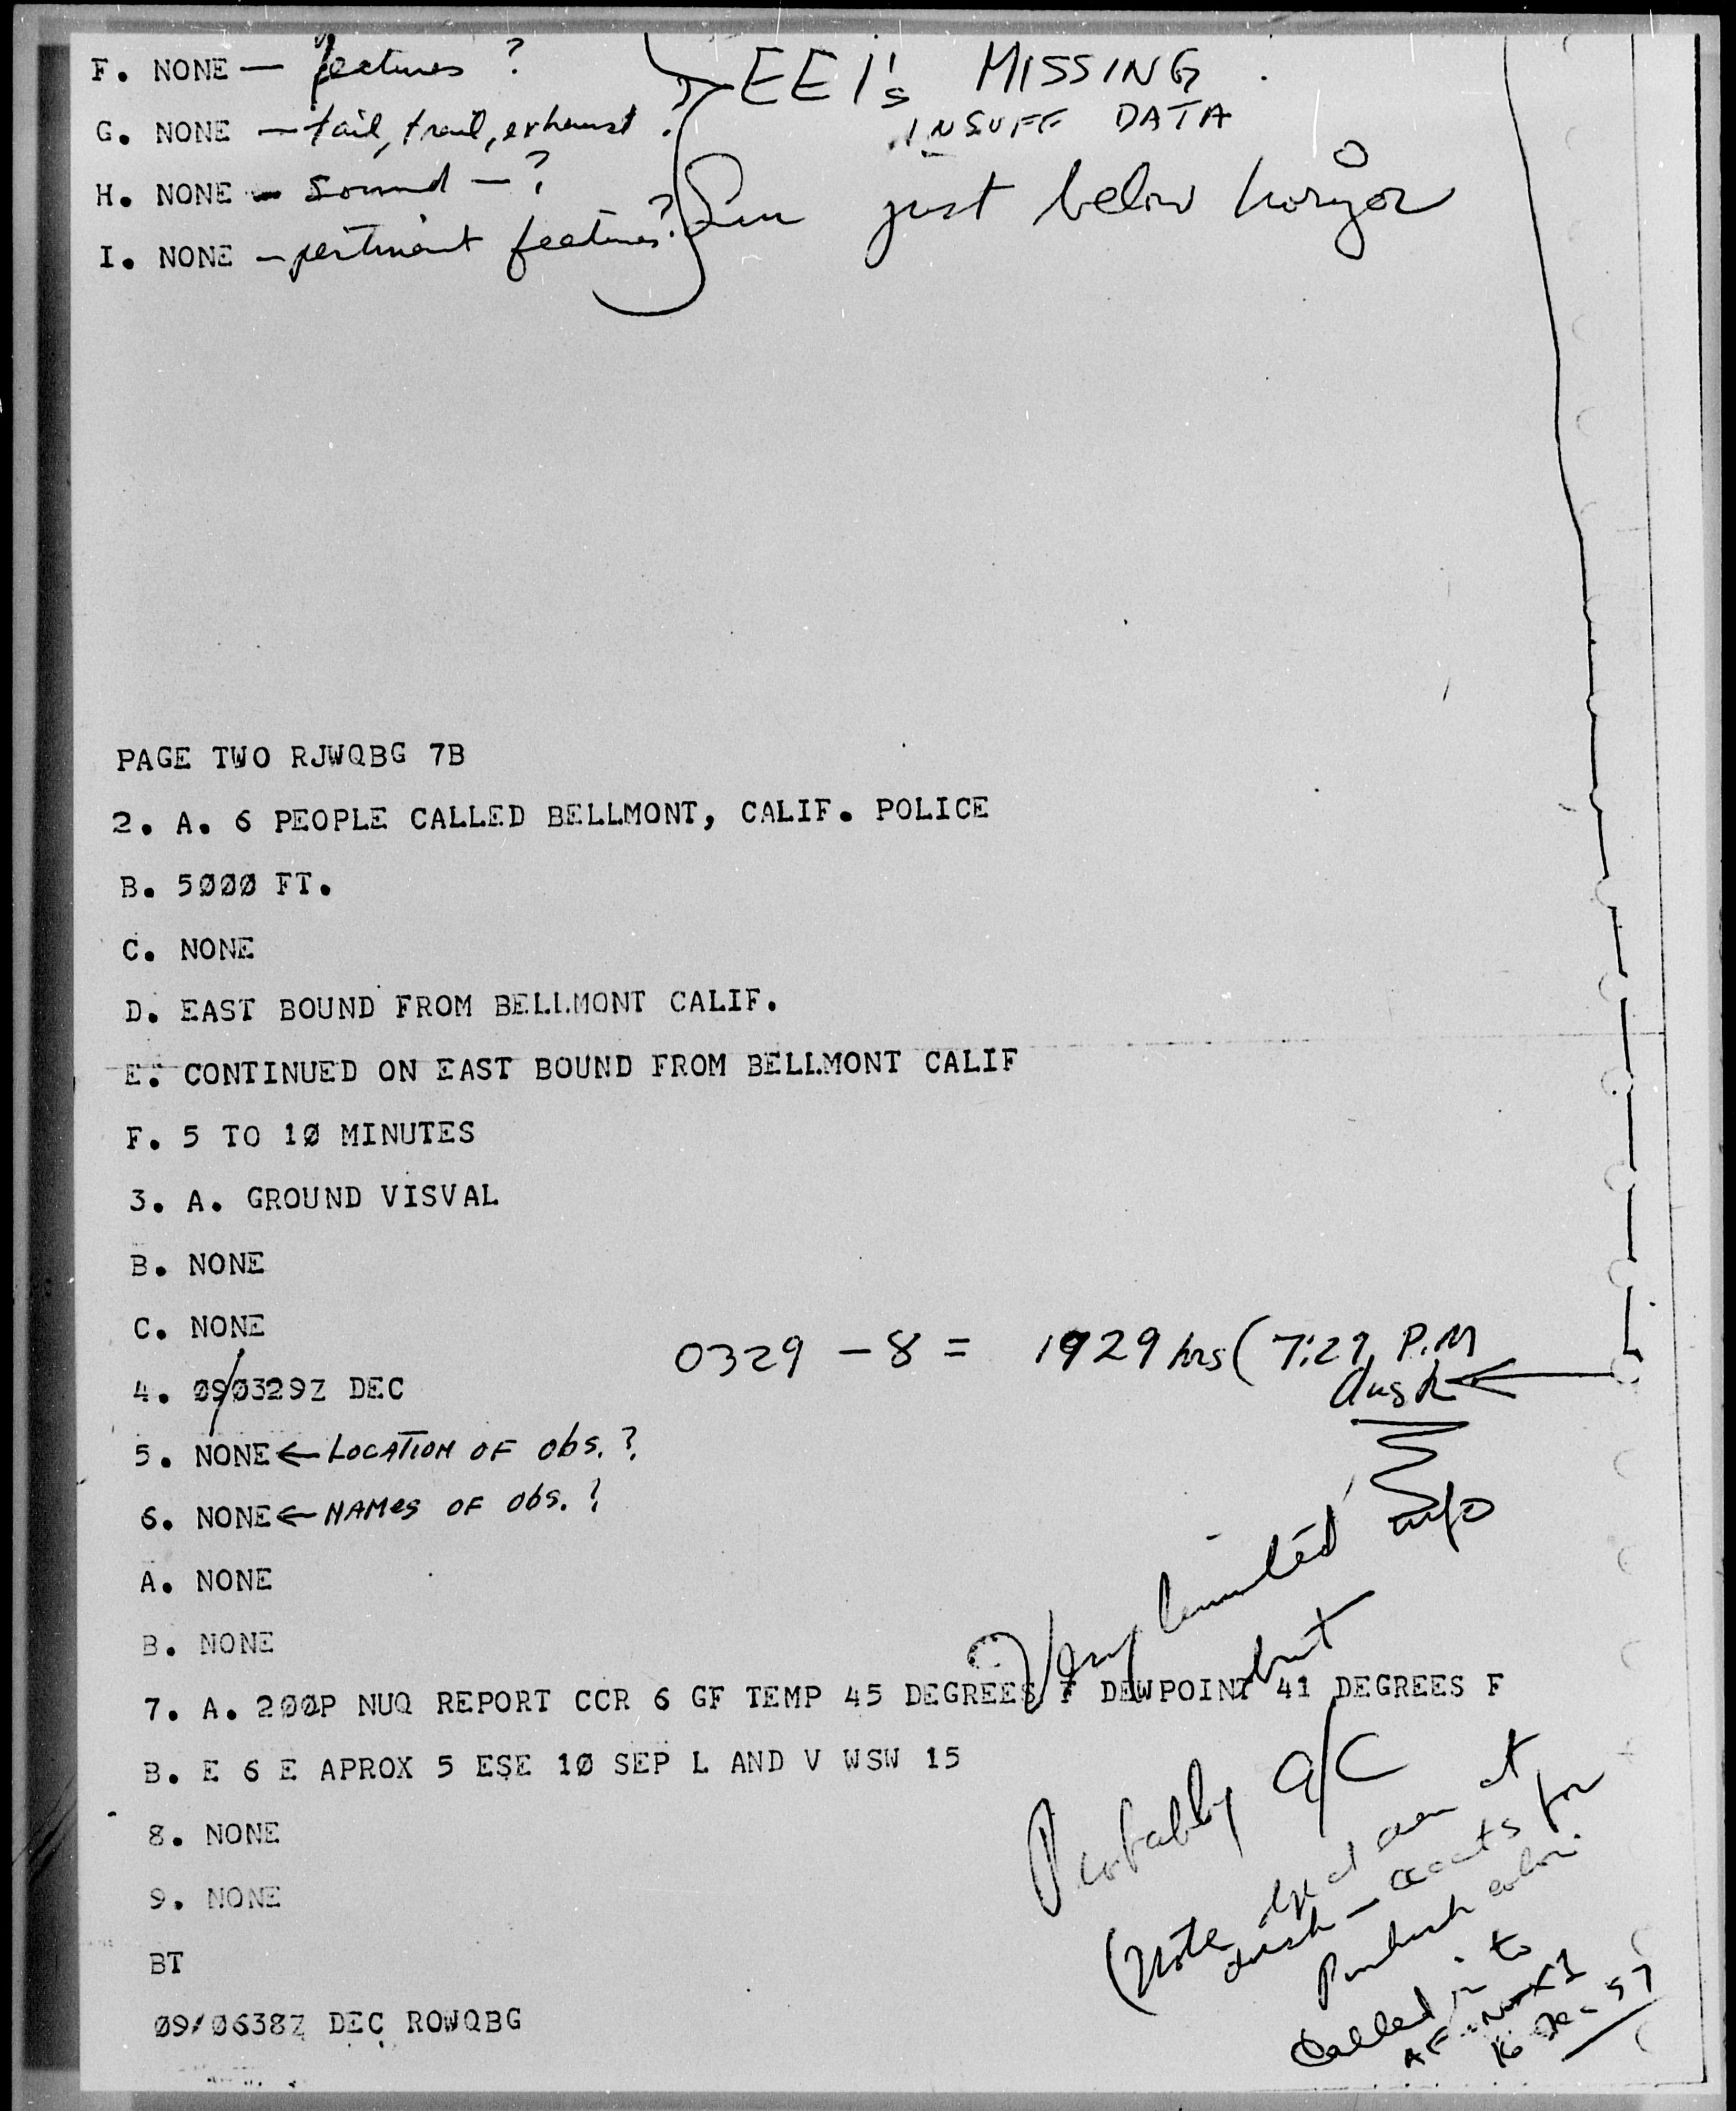 F. NONE — features ? EEI's MISSING
G. NONE — tail, trail, exhaust ? INSUFF DATA
H. NONE — Sound — ? Sun just below horizon
I. NONE — pertinent features?
PAGE TWO RJWQBG 7B
2. A. 6 PEOPLE CALLED BELLMONT, CALIF. POLICE
B. 5000 FT.
C. NONE
D. EAST BOUND FROM BELLMONT CALIF.
E. CONTINUED ON EAST BOUND FROM BELLMONT CALIF
F. 5 TO 10 MINUTES
3. A. GROUND VISVAL
B. NONE
C. NONE
0329 - 8 = 1929 hrs ( 7:29 P.M
4. 09/0329Z DEC
dusk
5. NONE ← LOCATION OF obs. ?
6. NONE ← NAMes OF obs. ?
A. NONE
B. NONE
Very limited info
but
7. A. 200P NUQ REPORT CCR 6 GF TEMP 45 DEGREES F DEWPOINT 41 DEGREES F
B. E 6 E APROX 5 ESE 10 SEP L AND V WSW 15
8. NONE
9. NONE
BT
09/0638Z DEC ROWQBG
Probably a/c
(Note at
dusk — for
Called in to
16 Dec 57